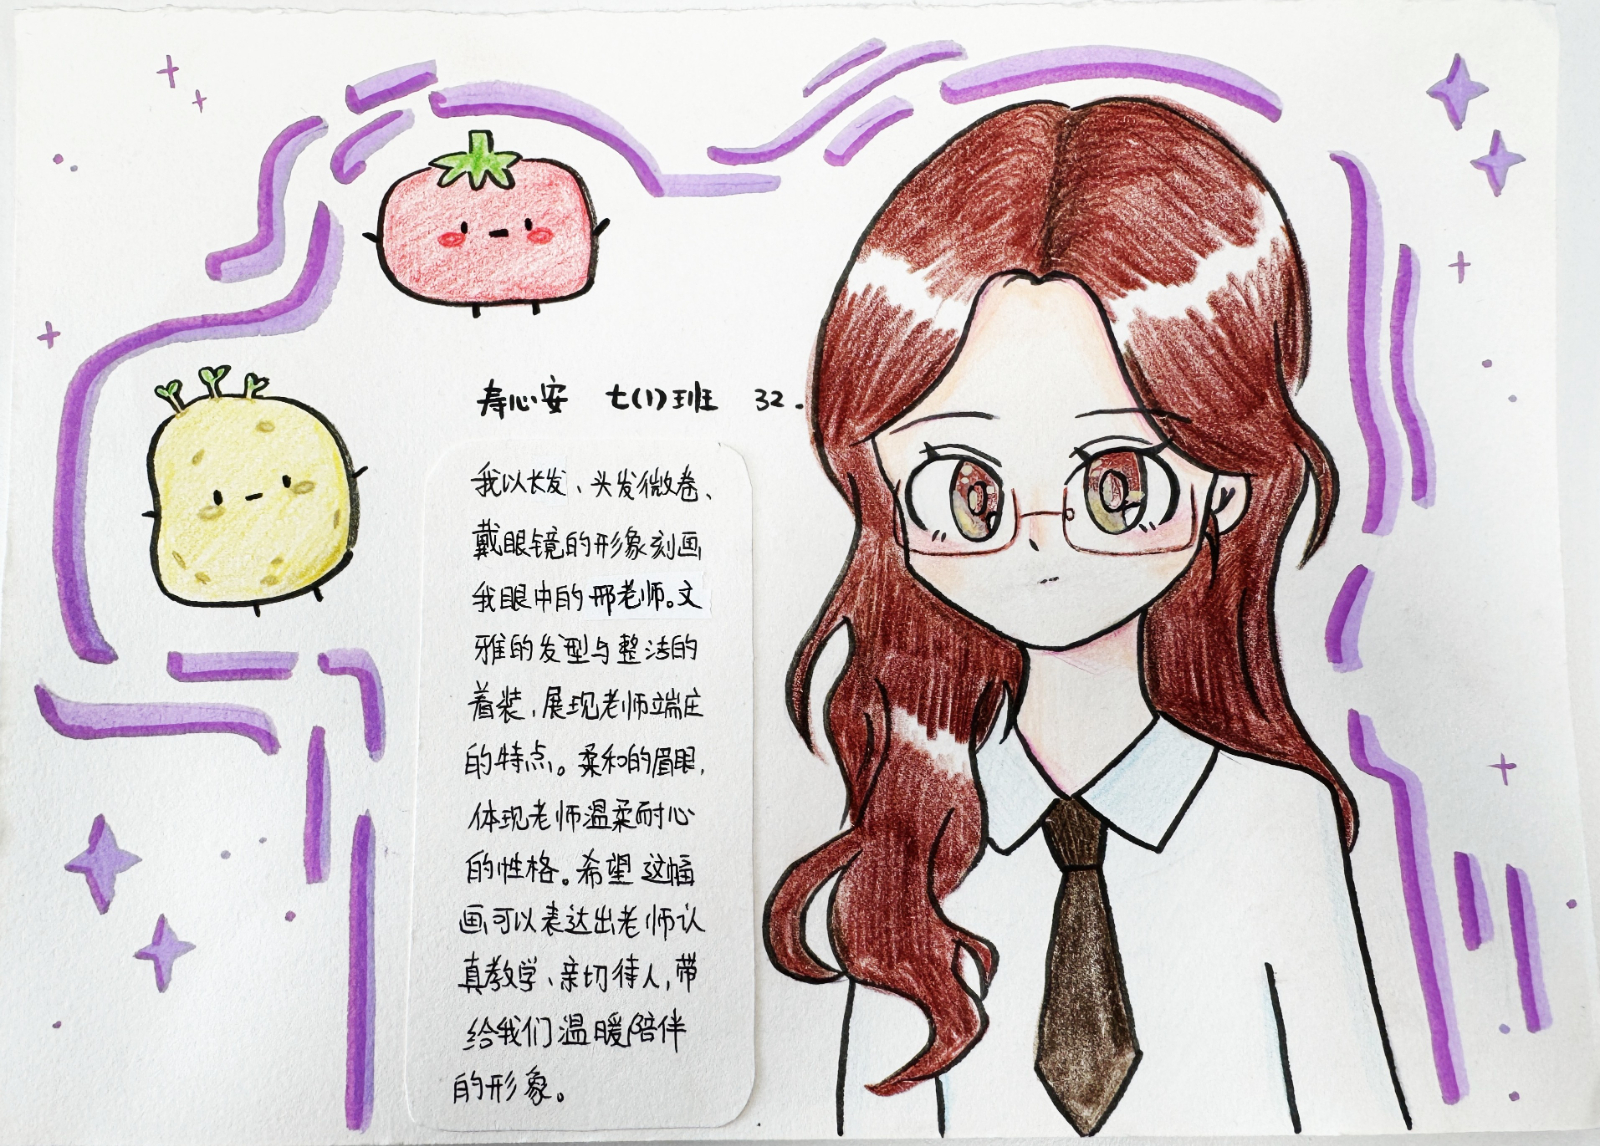 寿心安 七(1)班 32.
我以长发、头发微卷、
戴眼镜的形象刻画
我眼中的邢老师。文
雅的发型与整洁的
着装,展现老师端庄
的特点。柔和的眉眼,
体现老师温柔耐心
的性格。希望这幅
画可以表达出老师认
真教学、亲切待人,带
给我们温暖陪伴
的形象。